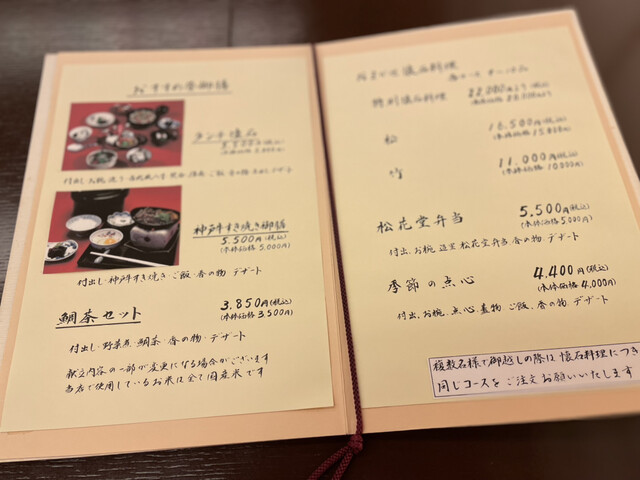 おすすめ昼御膳
ランチ懐石
付出し
ご飯 香の物 デザート
神戸牛すき焼き御膳
5,500円(税込)
(本体価格 5,000円)
付出し・神戸牛すき焼き・ご飯・香の物 デザート
鯛茶セット
3,850円(税込)
(本体価格 3,500円)
付出し・野菜煮・鯛茶・香の物・デザート
献立内容の一部が変更になる場合がございます
当店で使用しているお米は全て国産米です
懐石料理
特別懐石料理
22,000円より(税込)
(本体価格 20,000円より)
松
16,500円(税込)
(本体価格 15,000円)
竹
11,000円(税込)
(本体価格 10,000円)
松花堂弁当
5,500円(税込)
(本体価格 5,000円)
付出、お椀、造里、松花堂弁当、香の物、デザート
季節の点心
4,400円(税込)
(本体価格 4,000円)
付出、お椀、点心、煮物、ご飯、香の物、デザート
複数名様で御越しの際は懐石料理につき
同じコースをご注文お願いいたします